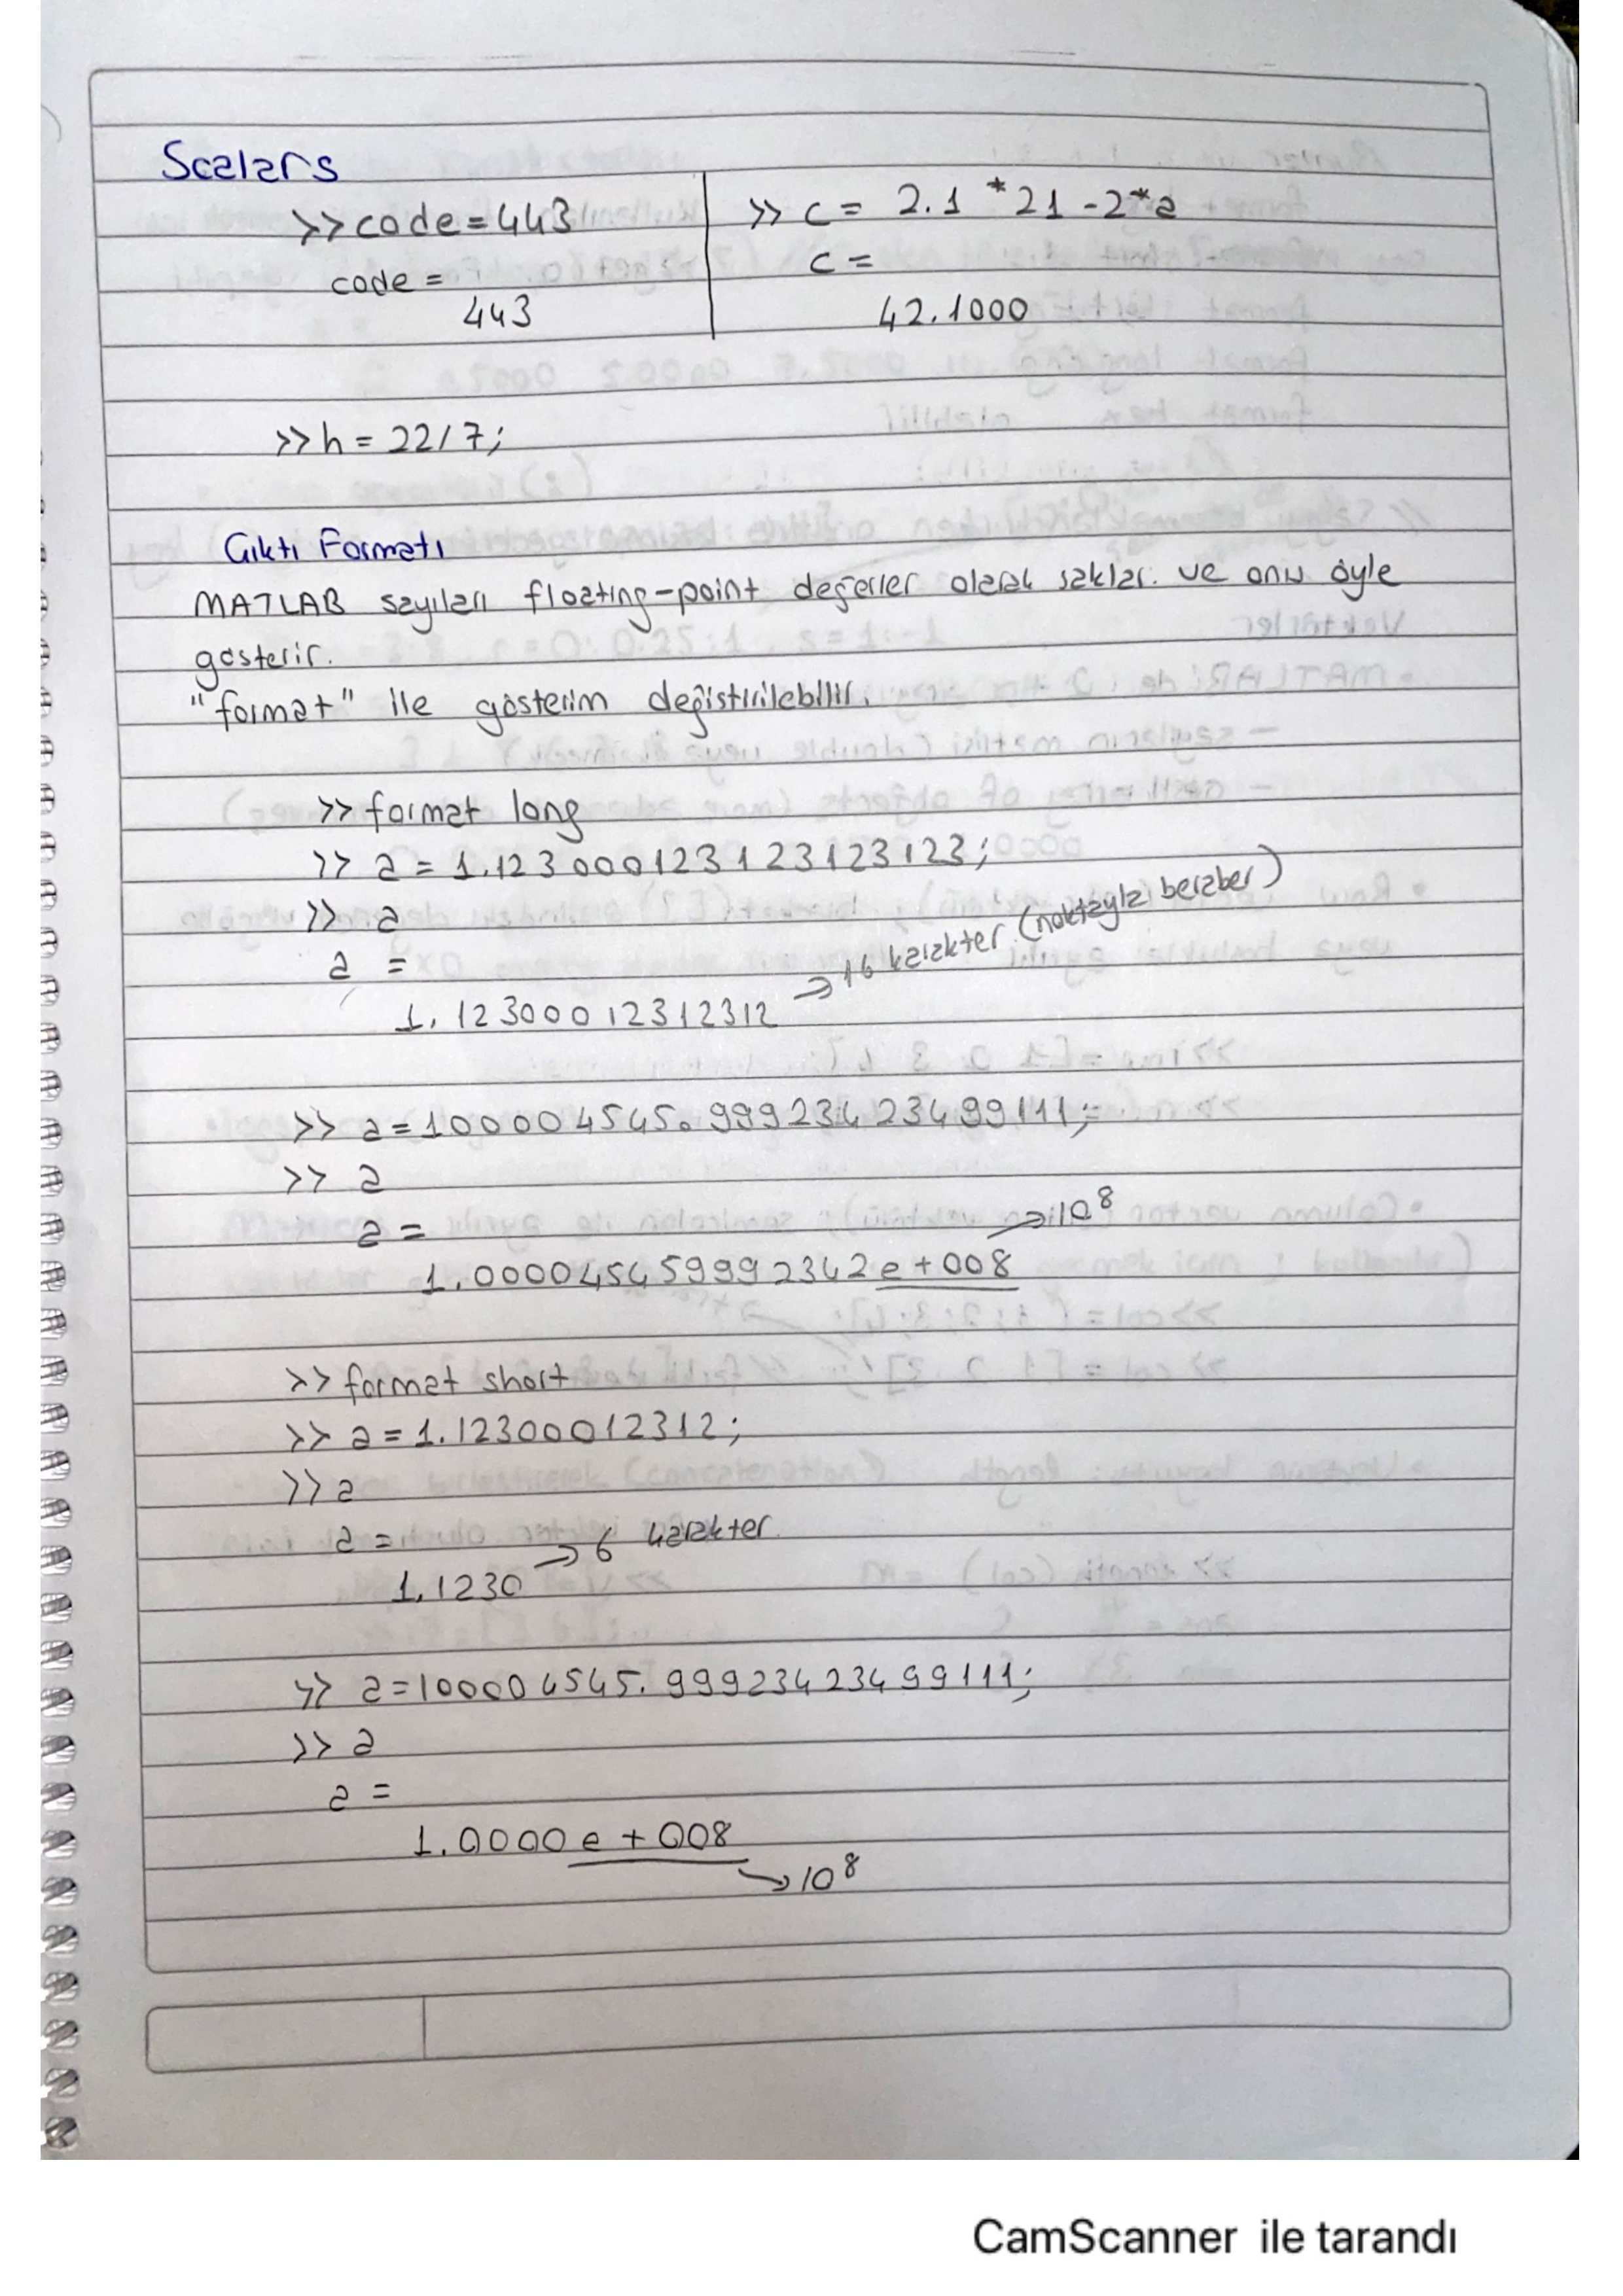 Scalars
>> code = 443
code =
443
>> c = 2.1 *21 -2*a
c =
42.1000
>> h = 22/7;
Çıktı Formatı
MATLAB sayıları floating-point değerler olarak saklar. ve onu öyle
gösterir.
"format" ile gösterim değiştirilebilir.
>> format long
>> a = 1.123000123123123123;
>> a
a =
1.12300012312312 → 16 karakter (noktayla beraber)
>> a = 100004545.99923423499111;
>> a
a = → 10^8
1.000045459992342e+008
>> format short
>> a = 1.12300012312;
>> a
a =
1.1230 → 6 karakter
>> a = 100004545.99923423499111;
>> a
a =
1.0000e+008
→ 10^8
CamScanner ile tarandı